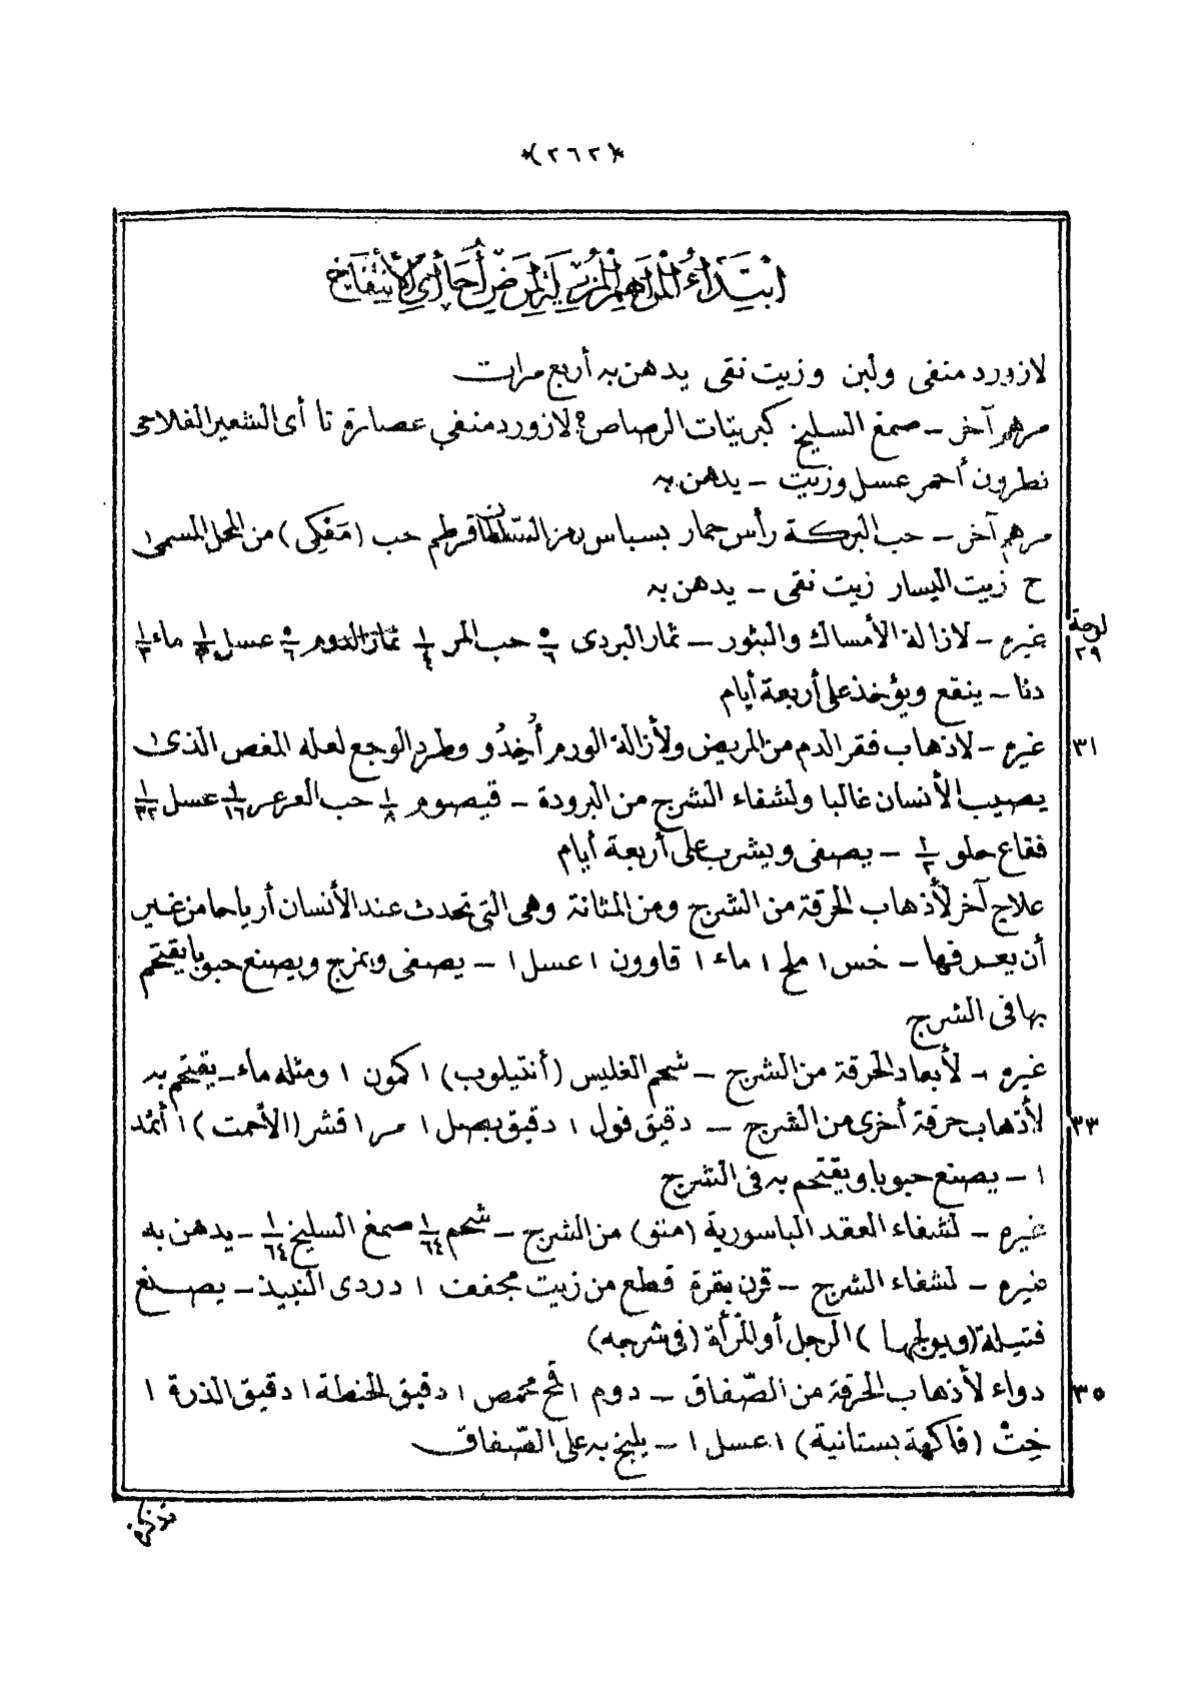 *(٢٦٢)*
ابْتِدَاءُ الْمَرَاهِمِ الْمُزِيلَةِ لِمَرَضِ أُحَا أَيِ الْأَنْتِفَاخِ
لازورد منفى ولبن وزيت نقى يدهن به أربع مرات
مرهم آخر – صمغ السليخ كبريتات الرصاص؟ لازورد منفي عصارة تا أى الشعير الفلاحى
نطرون أحمر عسل وزيت – يدهن به
مرهم آخر – حب البركة رأس حمار بسباس رمز السلطان قرطم حب (مَفْكِى) من المحل المسمى
ح زيت اليسار زيت نقى – يدهن به
لوحة ٢٩
غيره – لازالة الأمساك والبثور – ثمار البردى ٥/٦ حب المر ١/٤ ثمار الدوم ٥/٦ عسل ١/٣ ماء ١/٣
دنا – ينقع ويؤخذ على أربعة أيام
٣١
غيره – لاذهاب فقر الدم من المريض ولأزالة الورم أُخِدُو وطرد الوجع لعله المغص الذى
يصيب الأنسان غالبا ولشفاء الشرج من البرودة – قيصوم ١/٨ حب العرعر ١/١٦ عسل ١/٣٢
فقاع حلو ١/٢ – يصفى ويشرب على أربعة أيام
علاج آخر لأذهاب الحرقة من الشرج ومن المثانة وهى التى تحدث عند الأنسان أرياحا من غير
أن يعرفها – خس ١ ملح ١ ماء ١ قاوون ١ عسل ١ – يصفى ويمزج ويصنع حبوبا يقتحم
بها فى الشرج
غيره – لأبعاد الحرقة من الشرج – شحم الغليس (أنتيلوب) ١ كمون ١ ومثله ماء – يقتحم به
٣٣
لأذهاب حرقة أخرى من الشرج – دقيق فول ١ دقيق بصل ١ مر ١ قشر (الأحمت) ١ أثمد
١ – يصنع حبوبا ويقتحم به فى الشرج
غيره – لشفاء العقد الباسورية (متو) من الشرج – شحم ١/٦٤ صمغ السليخ ١/٦٤ – يدهن به
غيره – لشفاء الشرج – قرن بقرة قطع من زيت مجففت ١ دردى النبيذ – يصنع
فتيلة (ويولجها) الرجل أو المرأة (فى شرجه)
٣٥
دواء لأذهاب الحرقة من الصّفاق – دوم ١ قمح محمص ١ دقيق الحنطة ١ دقيق الذرة ١
خِتْ (فاكهة بستانية) ١ عسل ١ – يلبخ به على الصّفاق
تذكره